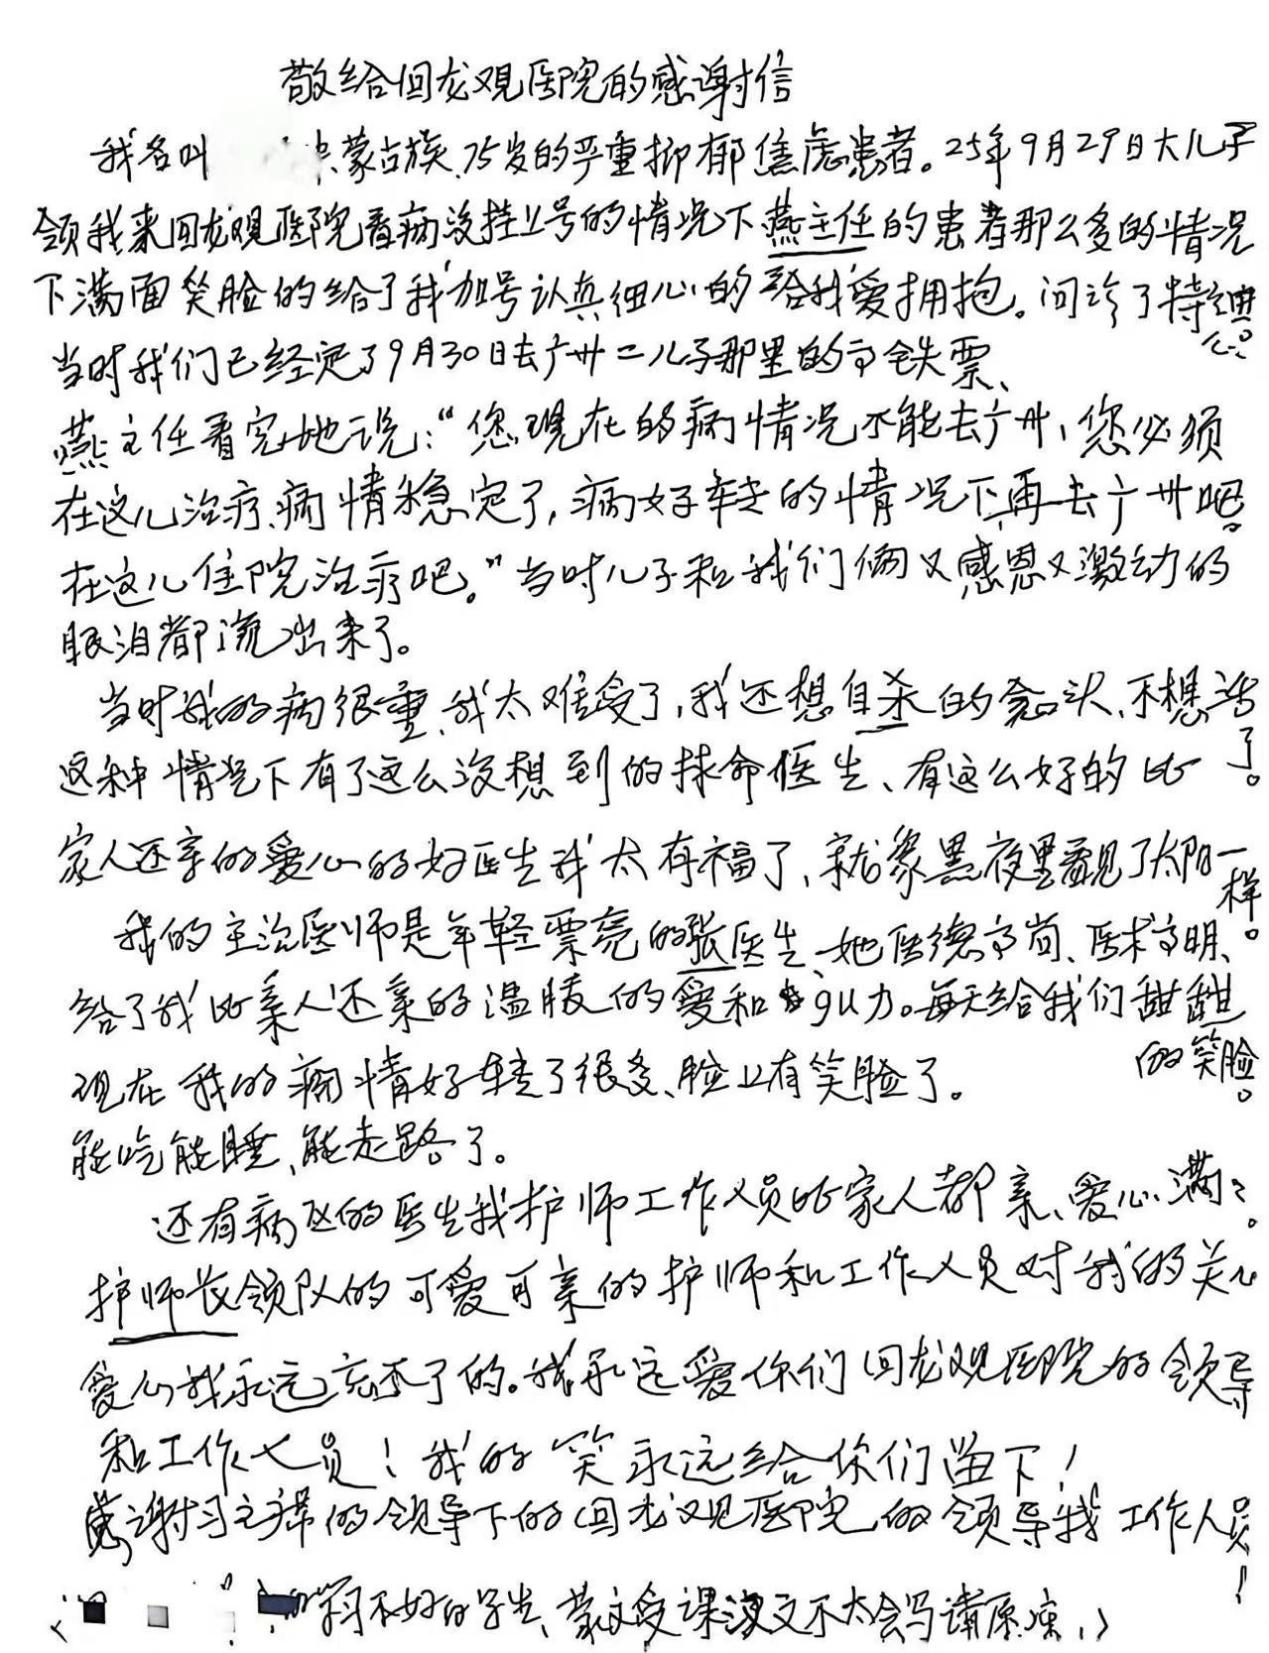 敬给回龙观医院的感谢信
我名叫 蒙古族.75岁的严重抑郁焦虑患者。25年9月29日大儿子
领我来回龙观医院看病没挂上号的情况下燕主任的患者那么多的情况
下满面笑脸的给了我加号认真细心的给我爱拥抱。问诊了特细心。
当时我们已经定了9月30日去广州二儿子那里的高铁票、
燕主任看完她说:“您现在的病情况不能去广州、您必须
在这儿治疗、病情稳定了,病好转的情况下再去广州吧。
在这儿住院治疗吧。”当时儿子和我们俩又感恩又激动的
眼泪都流出来了。
当时我的病很重、我太难受了,我还想自杀的念头、不想活了。
这种情况下有了这么没想到的救命医生、有这么好的比
家人还亲的爱心的好医生我太有福了、就象黑夜里看见了太阳一样。
我的主治医师是年轻票亮的张医生、她医德高尚、医术高明、
给了我比亲人还亲的温暖的爱和力。每天给我们甜甜的笑脸。
现在我的病情好转了很多、脸上有笑脸了。
能吃能睡、能走路了。
还有病区的医生我护师工作人员比家人都亲、爱心满满。
护师长领队的可爱可亲的护师和工作人员对我的关心
爱心我永远忘不了的。我永远爱你们回龙观医院的领导
和工作人员!我的笑永远给你们留下!
感谢习主席的领导下的回龙观医院的领导我工作人员!
学习不好的学生、蒙文受课汉文不太会写请原凉、)